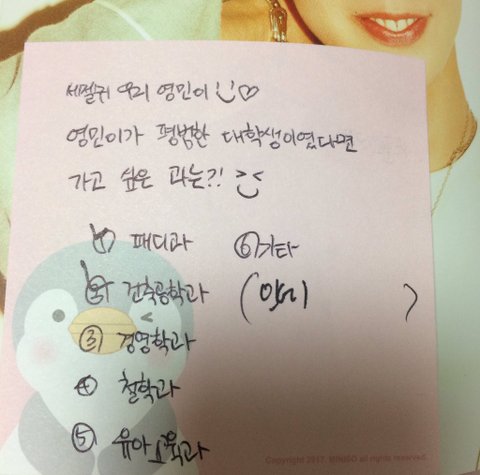 세젤귀 우리 영민이 :) ♡
영민이가 평범한 대학생이였다면
가고 싶은 과는?! >:)
① 패디과 ⑥ 기타
② 건축공학과 ( )
③ 경영학과
④ 철학과
⑤ 유아교육과
Copyright 2017. MINISO all rights reserved.